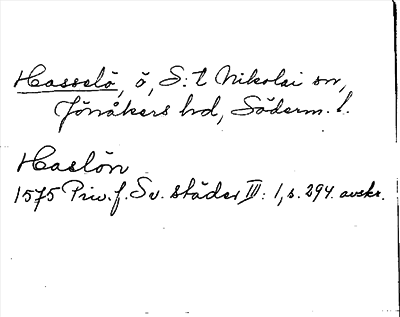 Hasselö, ö, S:t Nikolai sn,
Jönåkers hd, Söderm. l.
Haslön
1575 Priv. f. Sv. städer III: 1, s. 294. avskr.